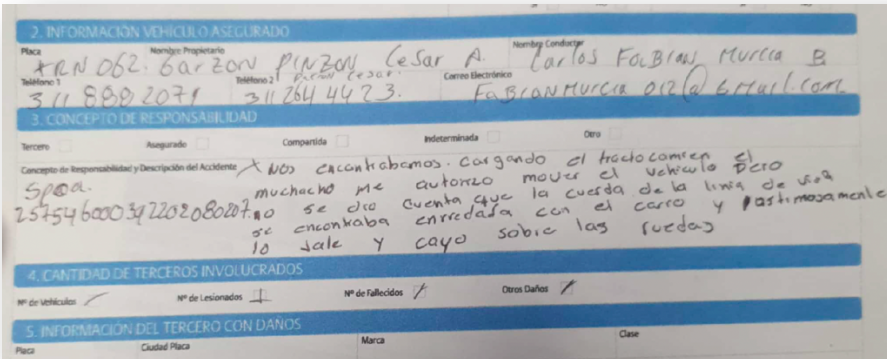 2. INFORMACIÓN VEHÍCULO ASEGURADO
Placa Nombre Propietario Nombre Conductor
XRN 062. Garzon Pinzon Cesar A. Carlos Fabian Murcia B
Teléfono 1 Teléfono 2 Correo Electrónico
311 888 2071 311 264 4423. Fabianmurcia 012@gmail.com
3. CONCEPTO DE RESPONSABILIDAD
Tercero Asegurado Compartida Indeterminada Otro
Concepto de Responsabilidad y Descripción del Accidente X Nos encontrabamos. cargando el tractocamion El
SPOA. muchacho me autorizo mover el vehiculo pero
257546000392202080207. no se dio cuenta que la cuerda de la linea de vida
se encontraba enredada con el carro y lastimosamente
lo jale y cayo sobre las ruedas
4. CANTIDAD DE TERCEROS INVOLUCRADOS
Nº de Vehículos Nº de Lesionados 1 Nº de Fallecidos Otros Daños
5. INFORMACIÓN DEL TERCERO CON DAÑOS
Placa Ciudad Placa Marca Clase